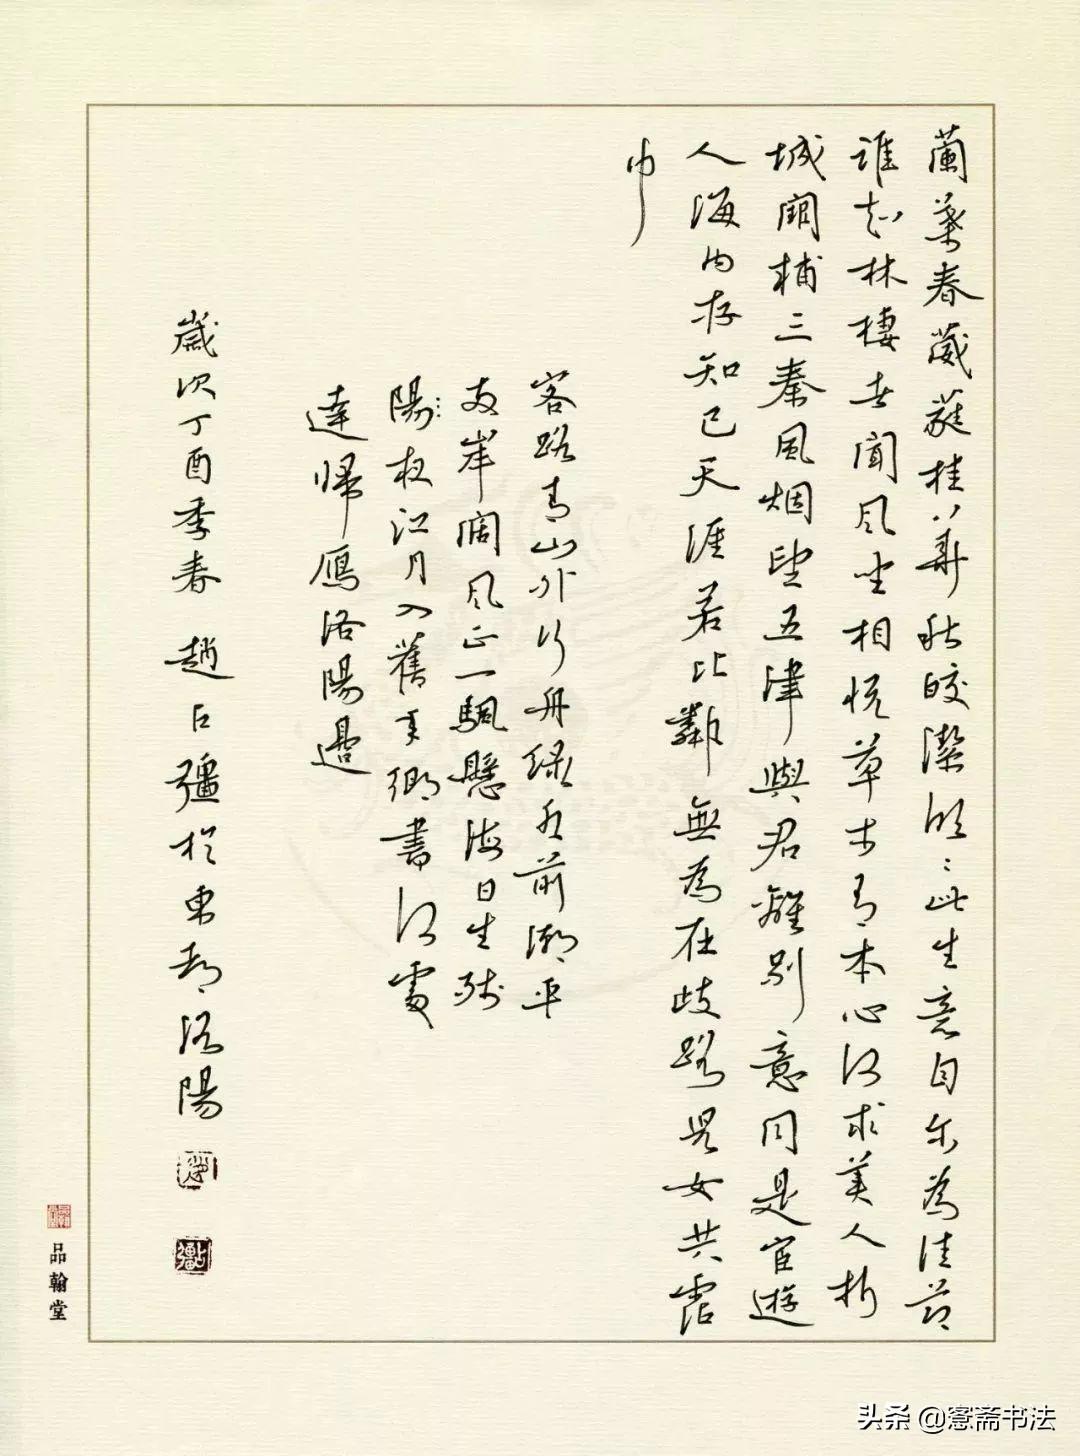 蘭葉春葳蕤桂華秋皎潔欣〻此生意自尔為佳節
誰知林棲者聞風坐相悅草木有本心何求美人折
城闕輔三秦風烟望五津與君離別意同是宦遊
人海内存知己天涯若比鄰無為在歧路兒女共霑
巾
客路青山外行舟緑水前潮平
兩岸闊風正一颿懸海日生殘
陽:夜江月入舊年鄉書何處
達歸鴈洛陽邊
歲次丁酉季春 趙占彊於東都洛陽
品翰堂
头条 @窓斋书法